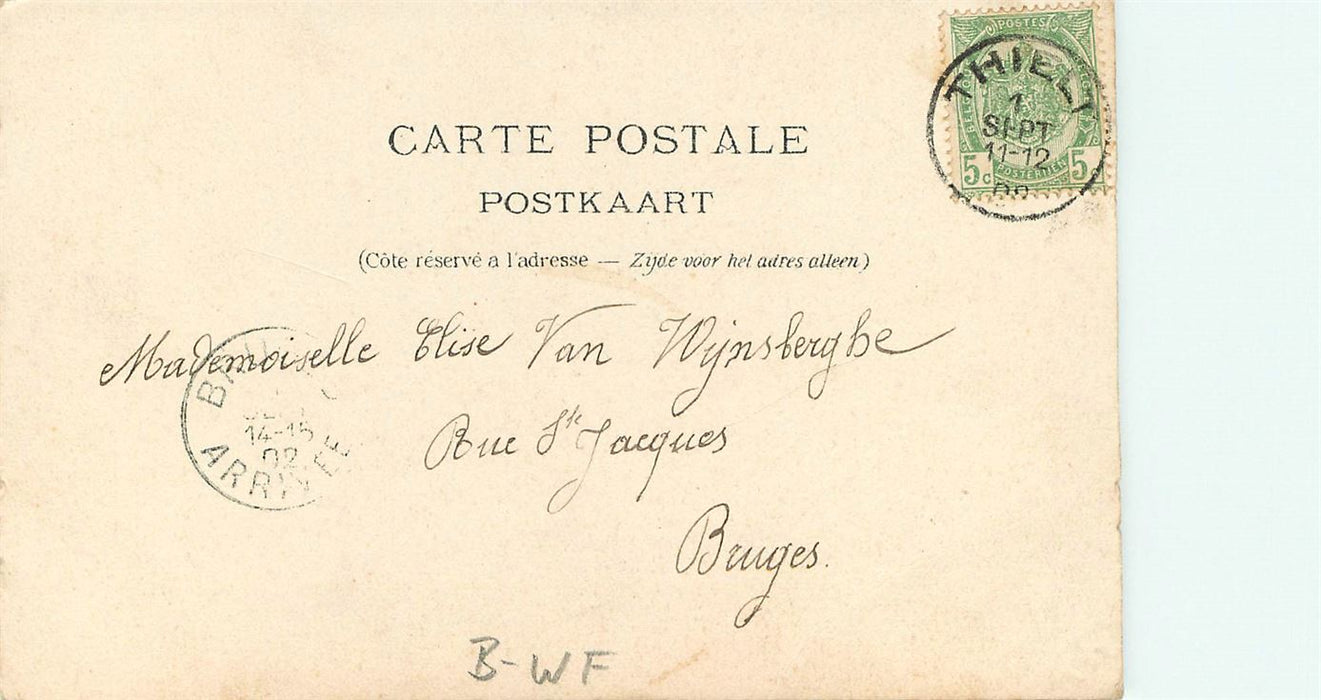 POSTES
THIELT
1
SEPT
11-12
5 POSTERIJEN 5
CARTE POSTALE
POSTKAART
(Côte réservé a l'adresse — Zijde voor het adres alleen)
Mademoiselle Elise Van Wijnsberghe
Rue St Jacques
Bruges.
14-15
ARRIVEE
B-WF